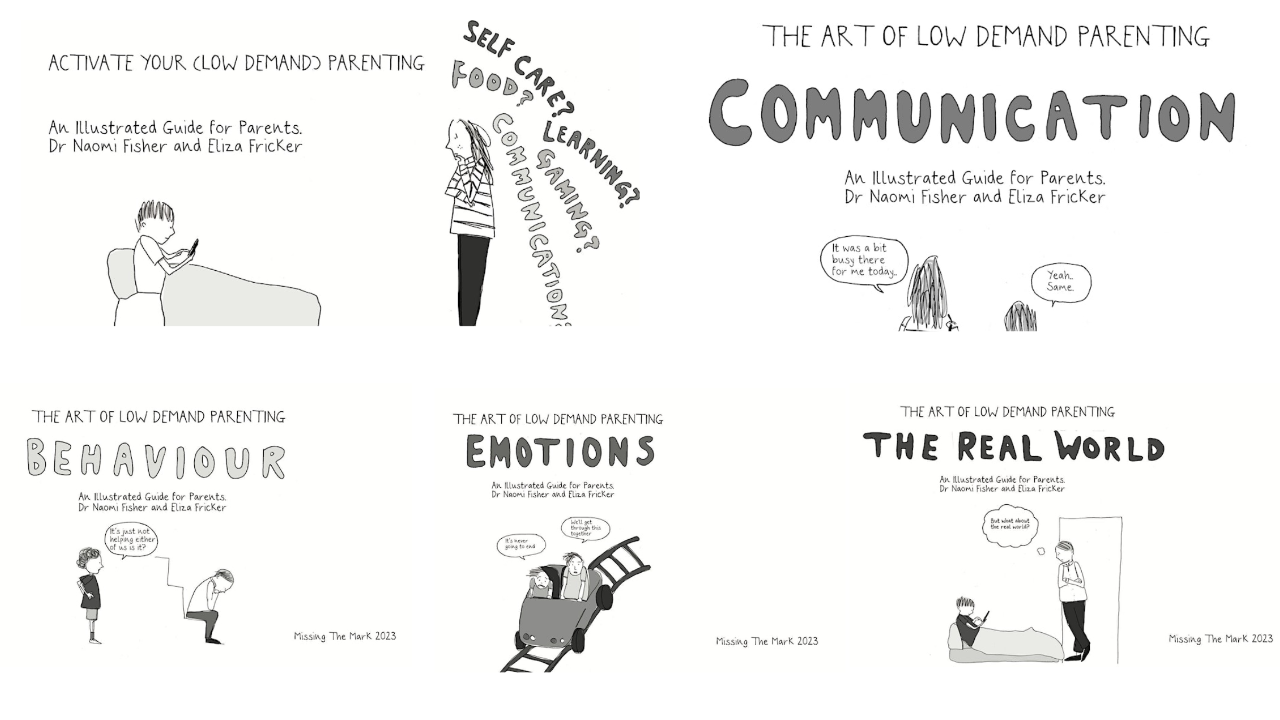 ACTIVATE YOUR (LOW DEMAND) PARENTING
An Illustrated Guide for Parents.
Dr Naomi Fisher and Eliza Fricker
SELF CARE?
FOOD?
LEARNING?
GAMING?
COMMUNICATION?
THE ART OF LOW DEMAND PARENTING
COMMUNICATION
An Illustrated Guide for Parents.
Dr Naomi Fisher and Eliza Fricker
It was a bit
busy there
for me today..
Yeah..
Same..
THE ART OF LOW DEMAND PARENTING
BEHAVIOUR
An Illustrated Guide for Parents.
Dr Naomi Fisher and Eliza Fricker
It's just not
helping either
of us is it?
Missing The Mark 2023
THE ART OF LOW DEMAND PARENTING
EMOTIONS
An Illustrated Guide for Parents.
Dr Naomi Fisher and Eliza Fricker
It's never
going to end
We'll get
through this
together
Missing The Mark 2023
THE ART OF LOW DEMAND PARENTING
THE REAL WORLD
An Illustrated Guide for Parents.
Dr Naomi Fisher and Eliza Fricker
But what about
the real world?
Missing The Mark 2023